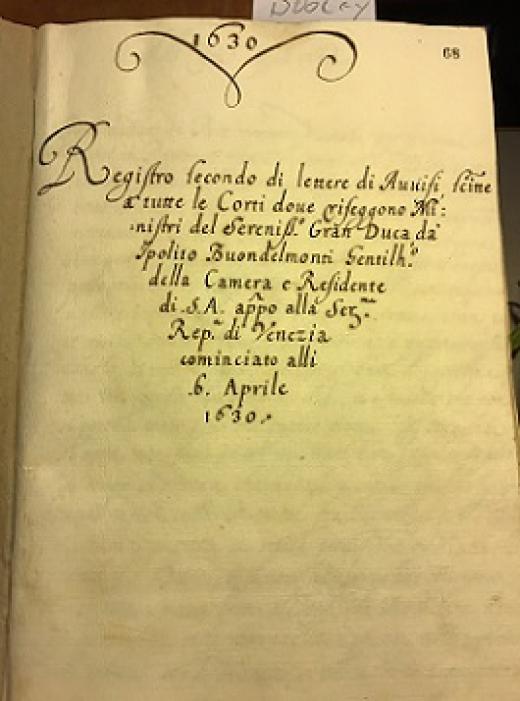 DUDLEY
1630
68
Registro secondo di lettere di Auuisi scr̃tte
a' tutte le Corti doue riseggono Mi:
nistri del Sereniss.º Gran Duca da'
Ipolito Buondelmonti Gentilh.º
della Camera e Residente
di .S.A. app̃o alla Ser.ma
Rep.ca di Venezia
cominciato alli
.6. Aprile
1630.